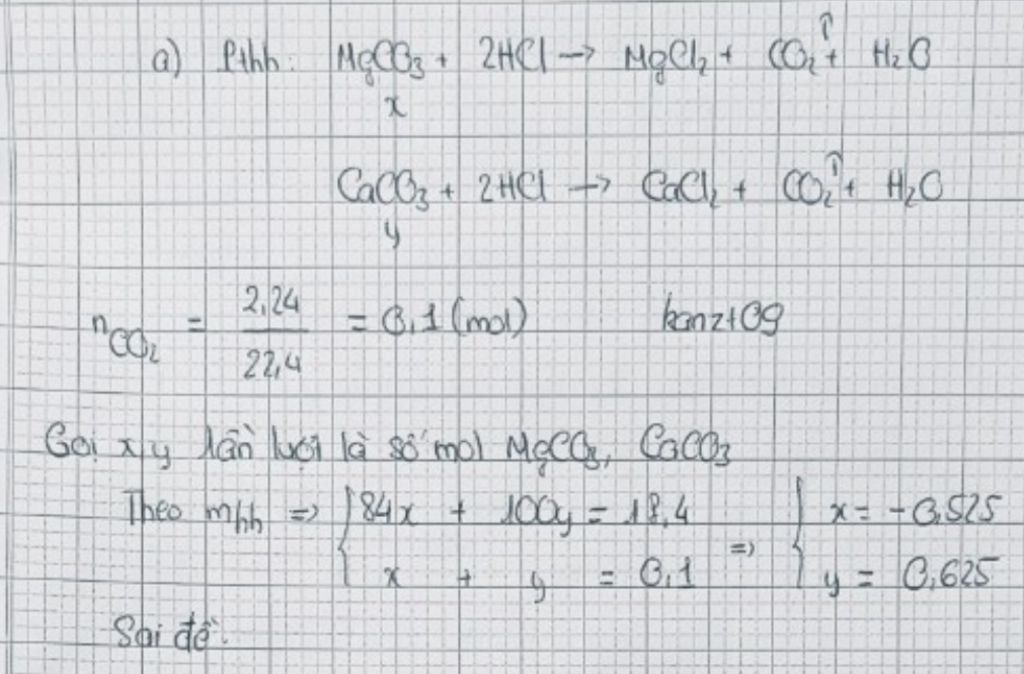 a) Pthh: MgCO₃ + 2HCl → MgCl₂ + CO₂↑ + H₂O
x
CaCO₃ + 2HCl → CaCl₂ + CO₂↑ + H₂O
y
nCO₂ = 2,24 / 22,4 = 0,1 (mol) kanz+09
Gọi x, y lần lượt là số mol MgCO₃, CaCO₃
Theo mhh => { 84x + 100y = 18,4 => { x = -0,525
x + y = 0,1 y = 0,625
Sai đề.